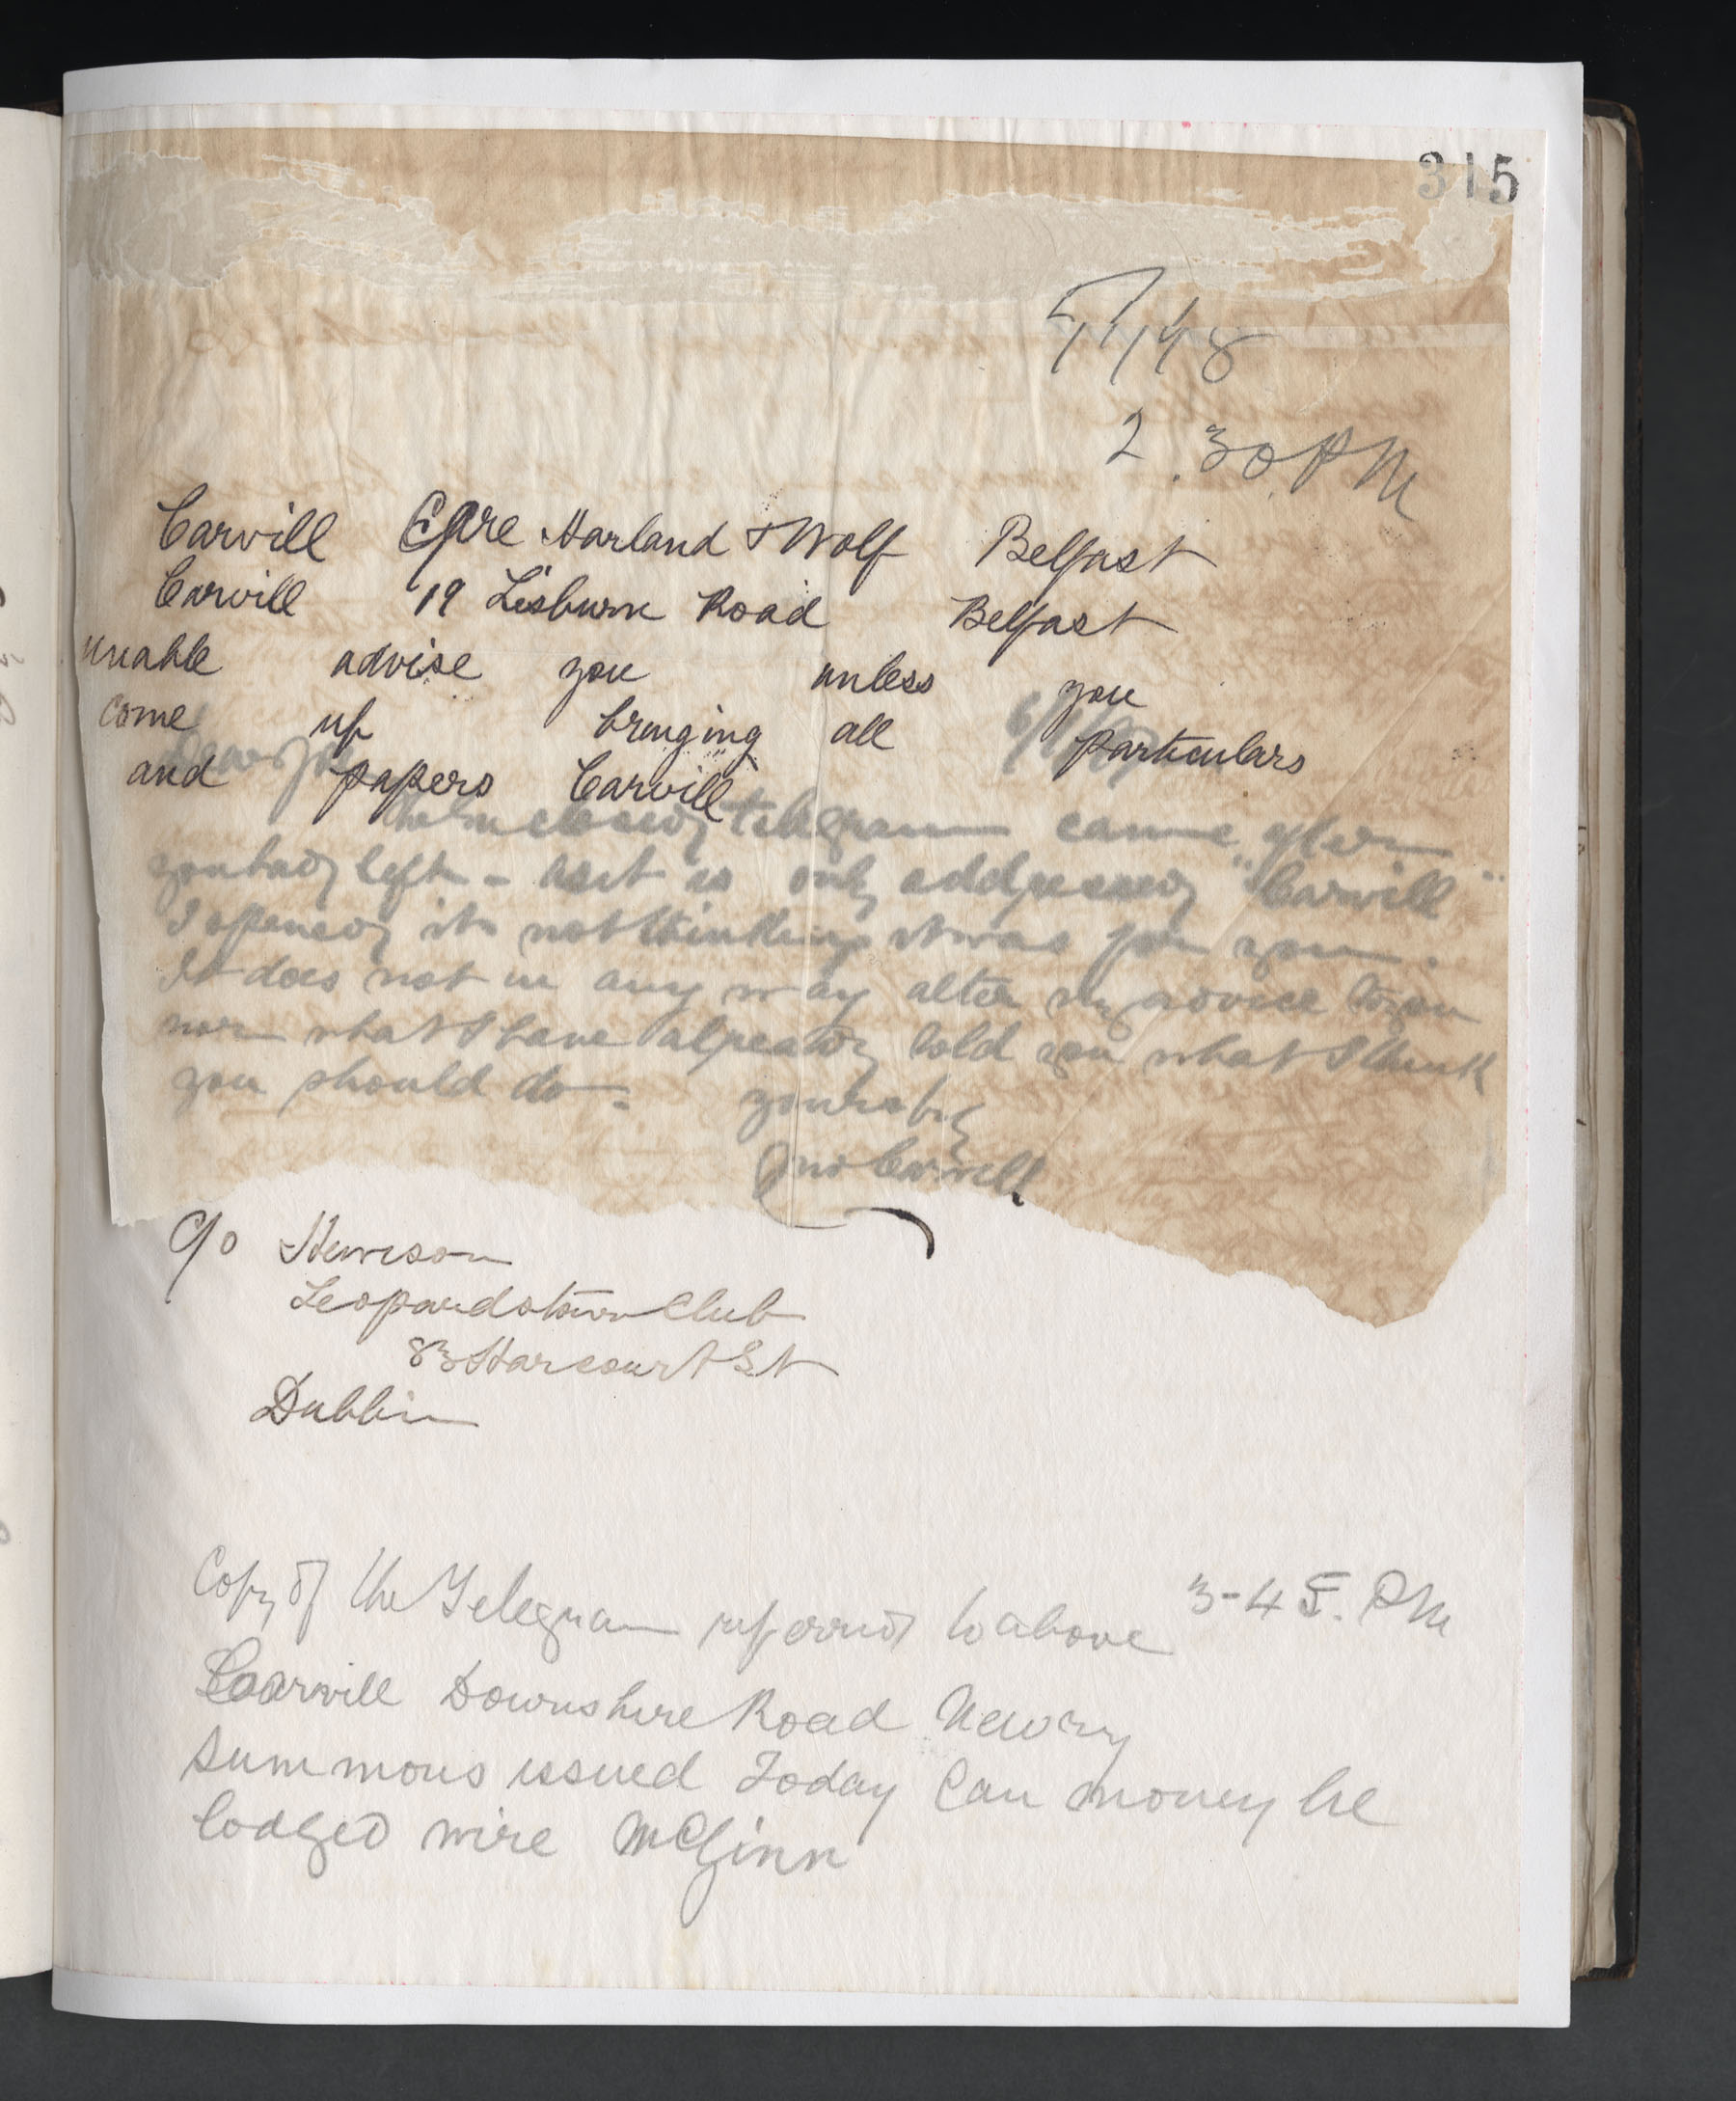 315
7/1/98
2.30. PM
Carvill Care Harland & Wolf Belfast
Carvill 19 Lisburn Road Belfast
unable advise you unless you
come up bringing all particulars
and papers Carvill
6/1/98
Dear Joe
The enclosed telegram came after
you had left - as it is only addressed "Carvill"
I opened it not thinking it was for you.
It does not in any way alter my advice to you
nor what I have already told you what I think
you should do.
yours try
Jno Carvill
c/o Hewson
Leopardstown Club
83 Harcourt St
Dublin
Copy of the Telegram referred to above 3-45. PM
Carvill Downshire Road Newry
Summons issued Today Can money be
lodged wire McGinn